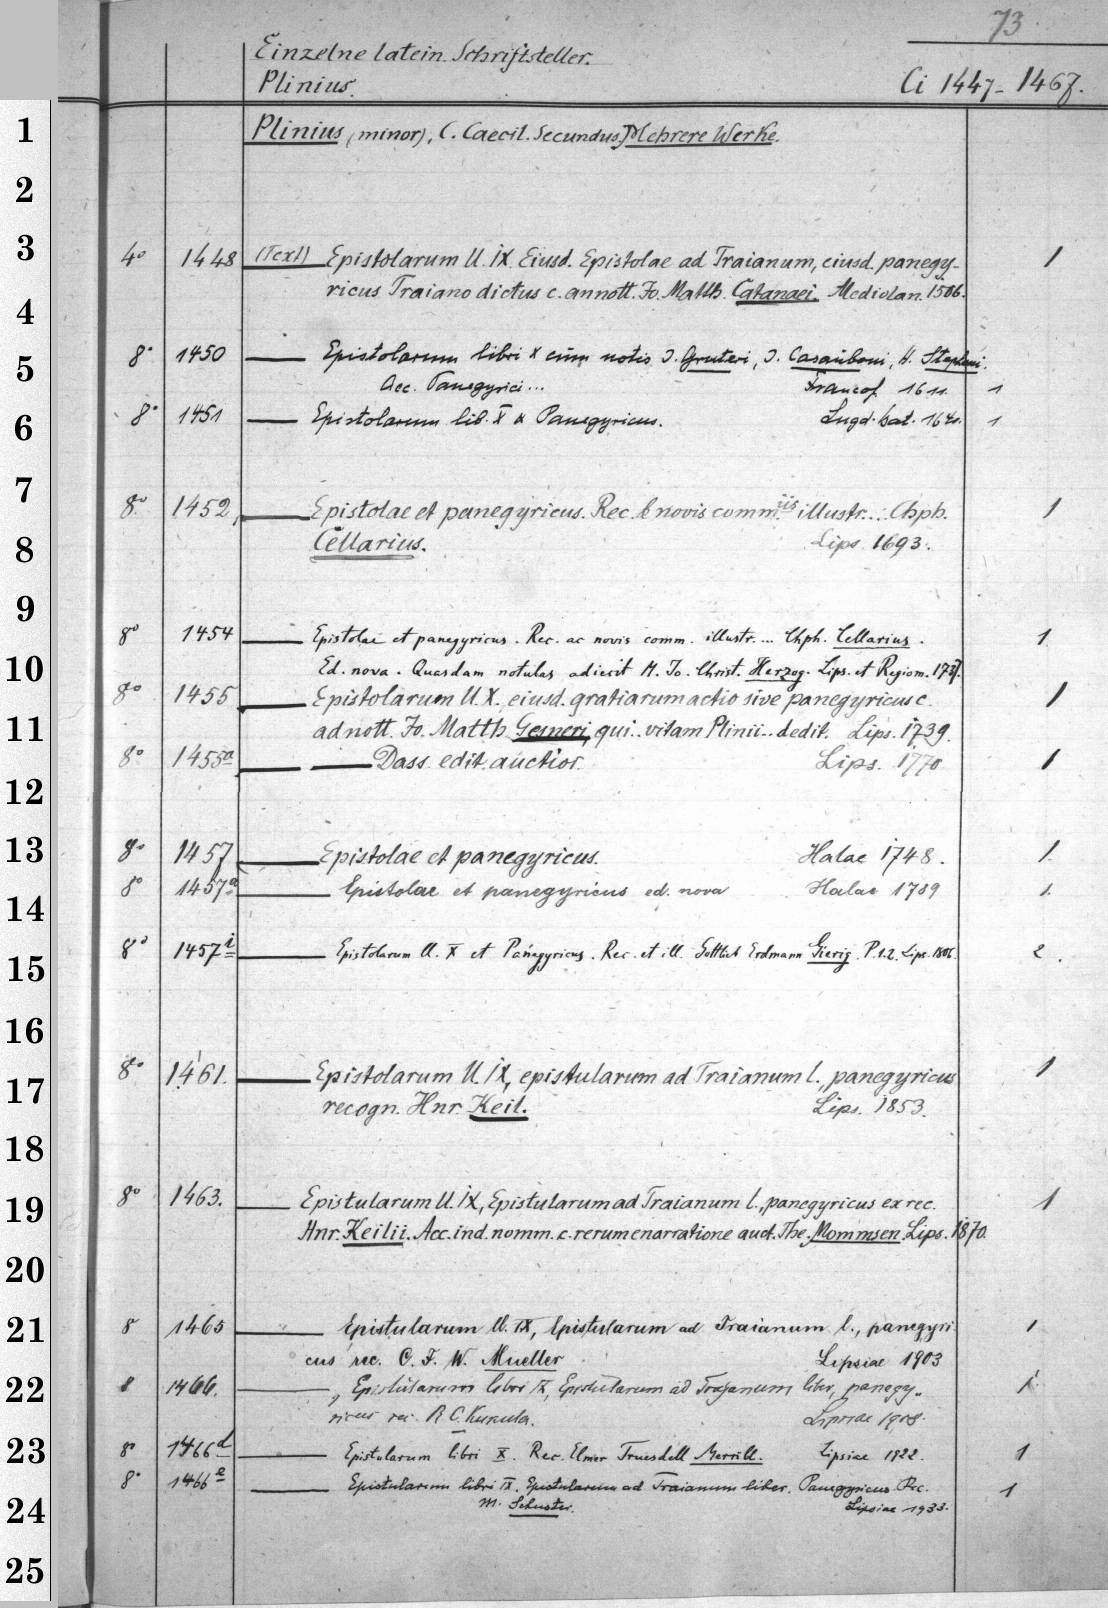 73
Einzelne latein. Schriftsteller.
Plinius.
Ci 1447-1467.
1
Plinius (minor), C. Caecil. Secundus, Mehrere Werke.
2
3
4° 1448 (Text) Epistolarum ll. IX. Eiusd. Epistolae ad Traianum, eiusd. panegy- 1
ricus Traiano dictus c. annott. Jo. Matth. Catanaei. Mediolan. 1506.
4
8° 1450 Epistolarum libri X cum notis J. Gruteri, J. Casauboni, H. Stephani.
5
Acc. Panegyrici ... Francof. 1611. 1
8° 1451 Epistolarum lib. X & Panegyricus. Lugd. bat. 1640. 1
6
7
8° 1452, Epistolae et panegyricus. Rec. & novis comm.iis illustr... Chph. 1
Cellarius. Lips. 1693.
8
9
8° 1454 Epistolae et panegyricus. Rec. ac novis comm. illustr.... Chph. Cellarius. 1
10
Ed. nova. Quasdam notulas adiecit M. Jo. Christ. Herzog. Lips. et Regiom. 1737.
8° 1455 Epistolarum ll. X. eiusd. gratiarum actio sive panegyricus c. 1
11
adnott. Jo. Matth. Gesneri, qui.. vitam Plinii.. dedit. Lips. 1739.
8° 1455a Dass. edit. auctior. Lips. 1770 1
12
13
8° 1457 Epistolae et panegyricus. Halae 1748. 1.
8° 1457a Epistolae et panegyricus ed. nova Halae 1789 1.
14
8° 1457i Epistolarum ll. X et Panegyricus. Rec. et ill. Gottlieb Erdmann Gierig. P. 1.2. Lips. 1806. 2.
15
16
8° 1461. Epistolarum ll. IX, epistularum ad Traianum l., panegyricus 1
17
recogn. Hnr. Keil. Lips. 1853.
18
8° 1463. Epistularum ll. IX, Epistularum ad Traianum l., panegyricus ex rec. 1
19
Hnr. Keilii. Acc. ind. nomm. c. rerum enarratione auct. The. Mommsen. Lips. 1870.
20
8 1465 Epistularum ll. IX, Epistularum ad Traianum l., panegyri 1
21
cus rec. C. F. W. Mueller Lipsiae 1903
8 1466. , Epistularum libri IX, Epistularum ad Trajanum liber, panegy- 1.
22
ricus rec. R. C. Kukula. Lipsiae 1908.
8° 1466d Epistularum libri X. Rec. Elmer Truesdell Merrill. Lipsiae 1922. 1
23
8° 1466e Epistularum libri IX. Epistularum ad Traianum liber. Panegyricus. Rec. 1
M. Schuster. Lipsiae 1933.
24
25